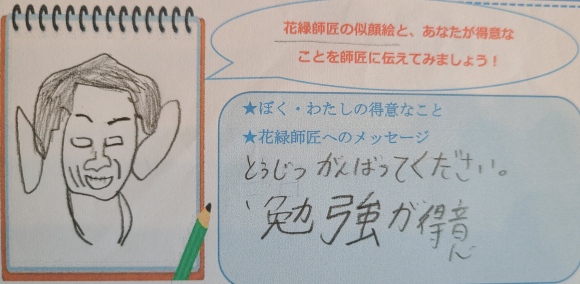 花緑師匠の似顔絵と、あなたが得意な
ことを師匠に伝えてみましょう！
★ぼく・わたしの得意なこと
★花緑師匠へのメッセージ
とうじつ がんばってください。
勉強が得意